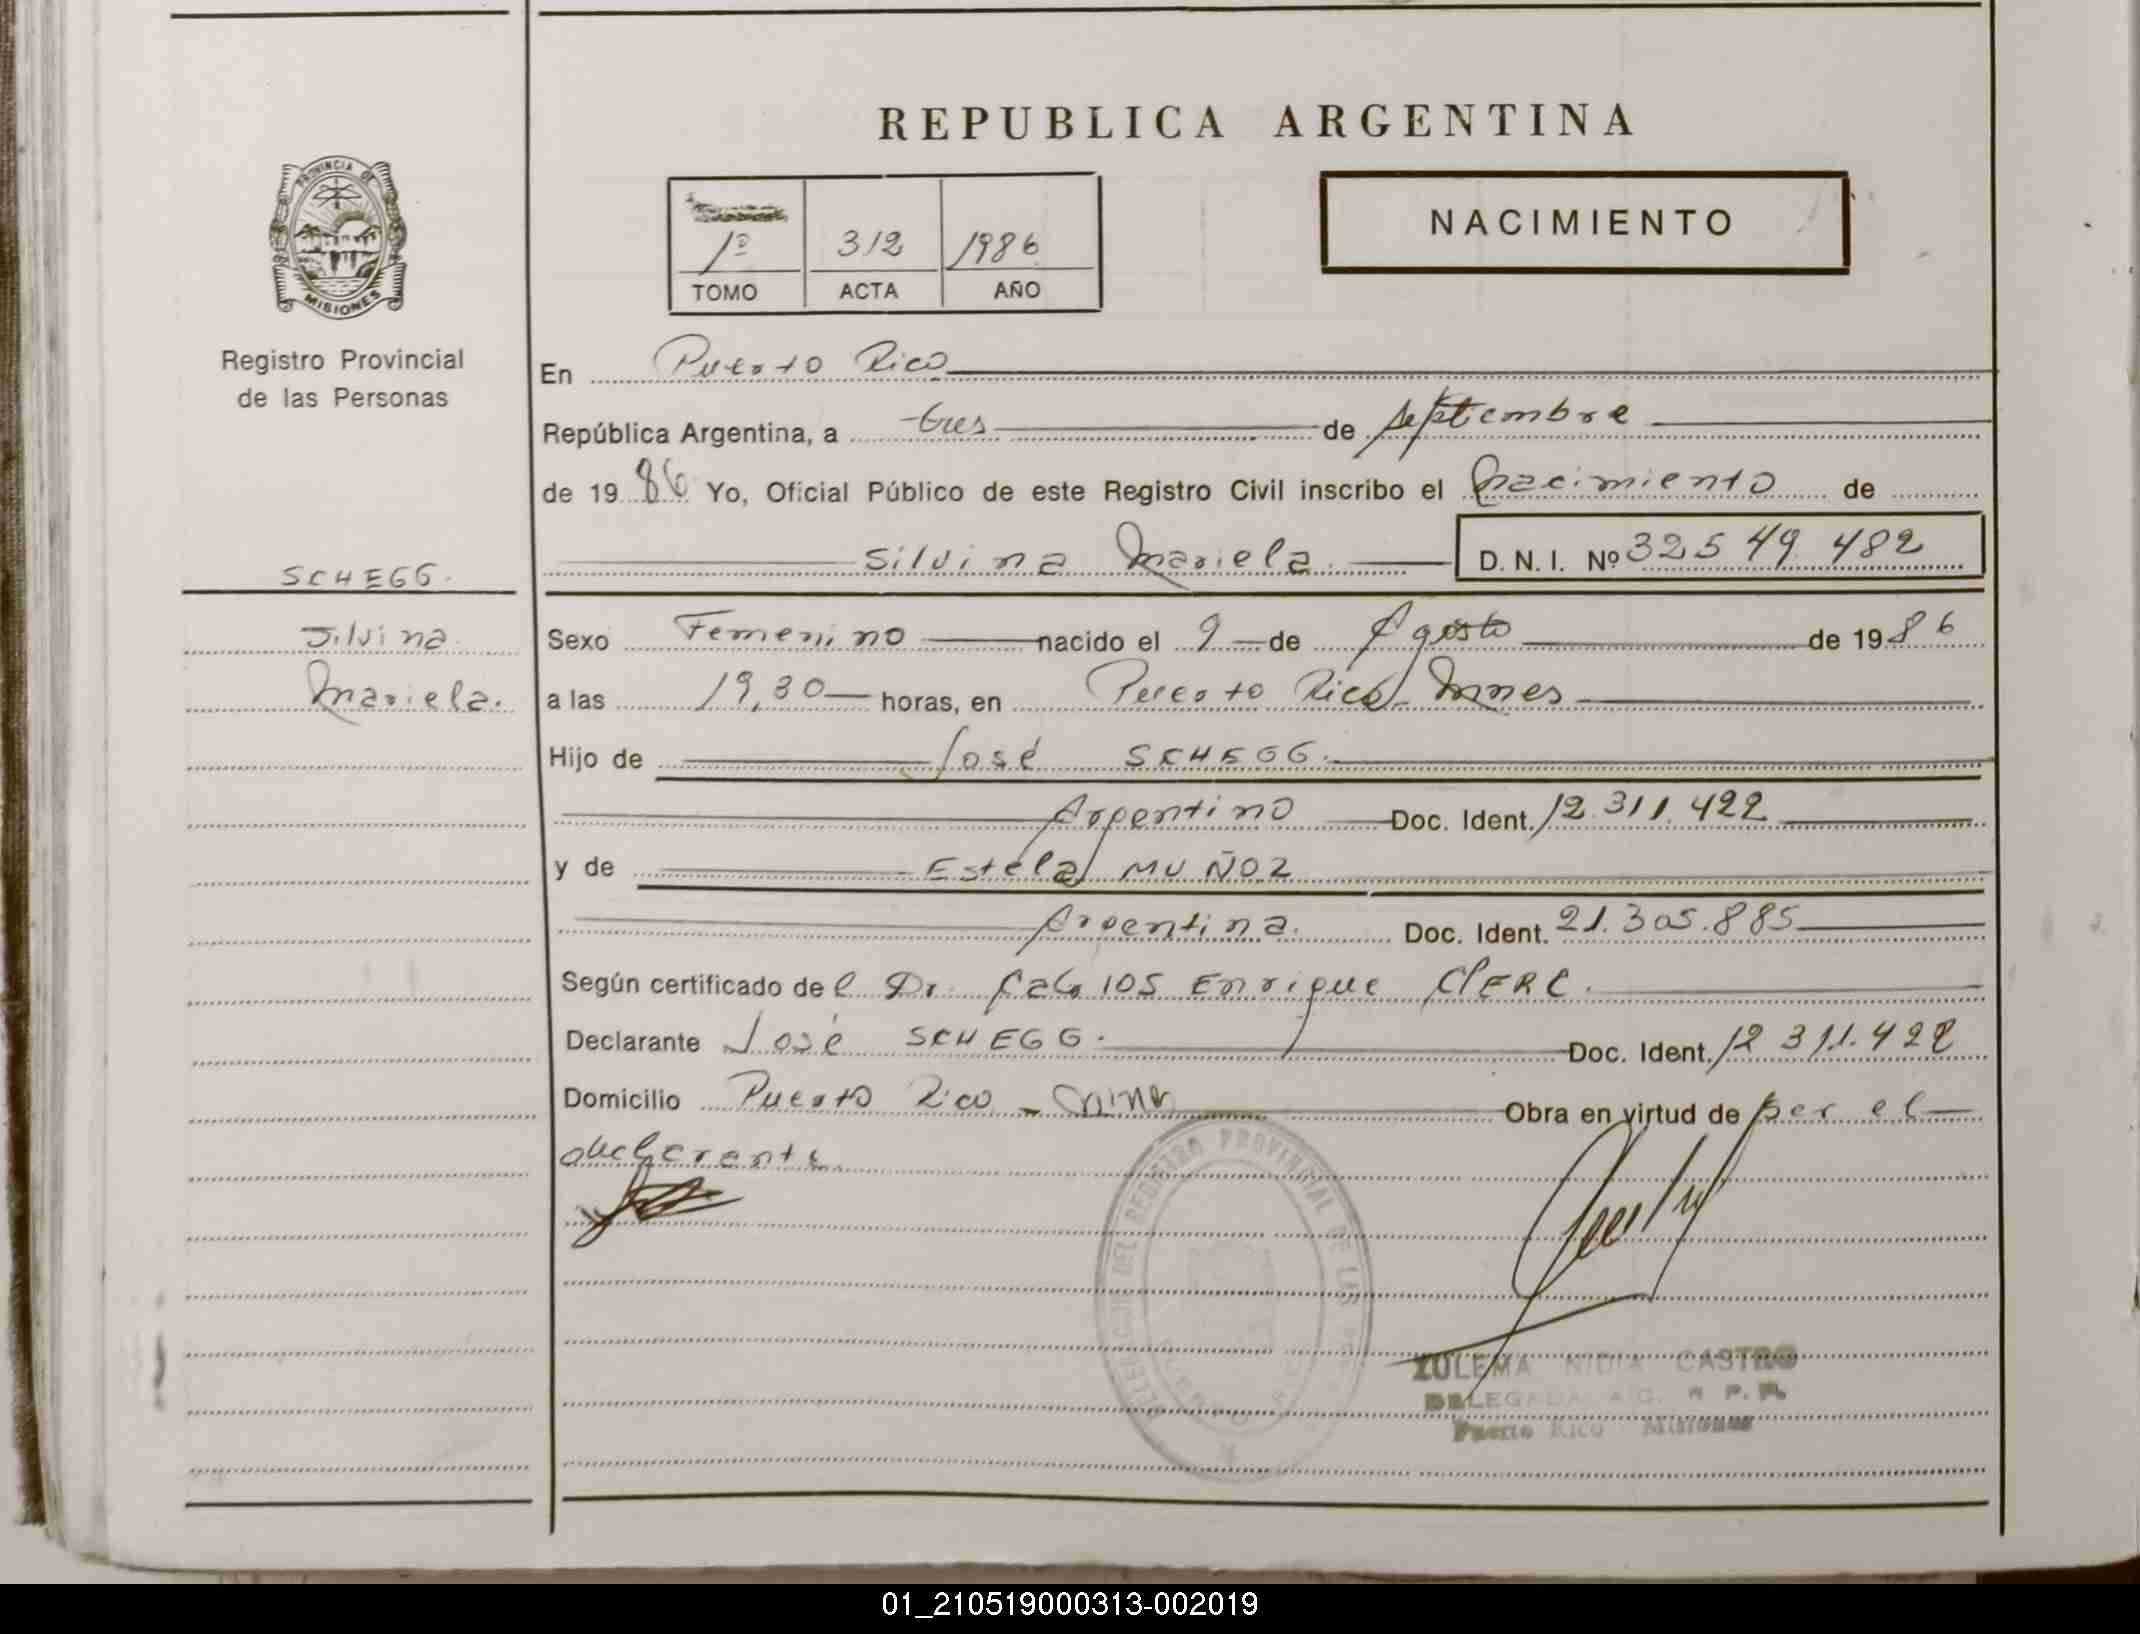 REPUBLICA ARGENTINA
PROVINCIA DE
MISIONES
Registro Provincial
de las Personas
1º 312 1986
TOMO ACTA AÑO
NACIMIENTO
En Puerto Rico
República Argentina, a tres de septiembre
de 1986 Yo, Oficial Público de este Registro Civil inscribo el Nacimiento de
Silvina Mariela. D. N. I. Nº 32549482
SCHEGG.
Silvina
Mariela.
Sexo Femenino nacido el 9 de Agosto de 1986
a las 19,30 horas, en Puerto Rico Mnes
Hijo de José SCHEGG.
Argentino Doc. Ident. 12.311.422
y de Estela MUÑOZ
Argentina. Doc. Ident. 21.305.885
Según certificado del Dr. Carlos Enrique CLERC.
Declarante José SCHEGG. Doc. Ident. 12.311.422
Domicilio Puerto Rico - Obra en virtud de ser el
declarante.
DELEGACION DEL REGISTRO PROVINCIAL DE LAS
PUERTO RICO
ZULEMA NIDIA CASTRO
DELEGADA R. P. P.
Puerto Rico Misiones
01_210519000313-002019